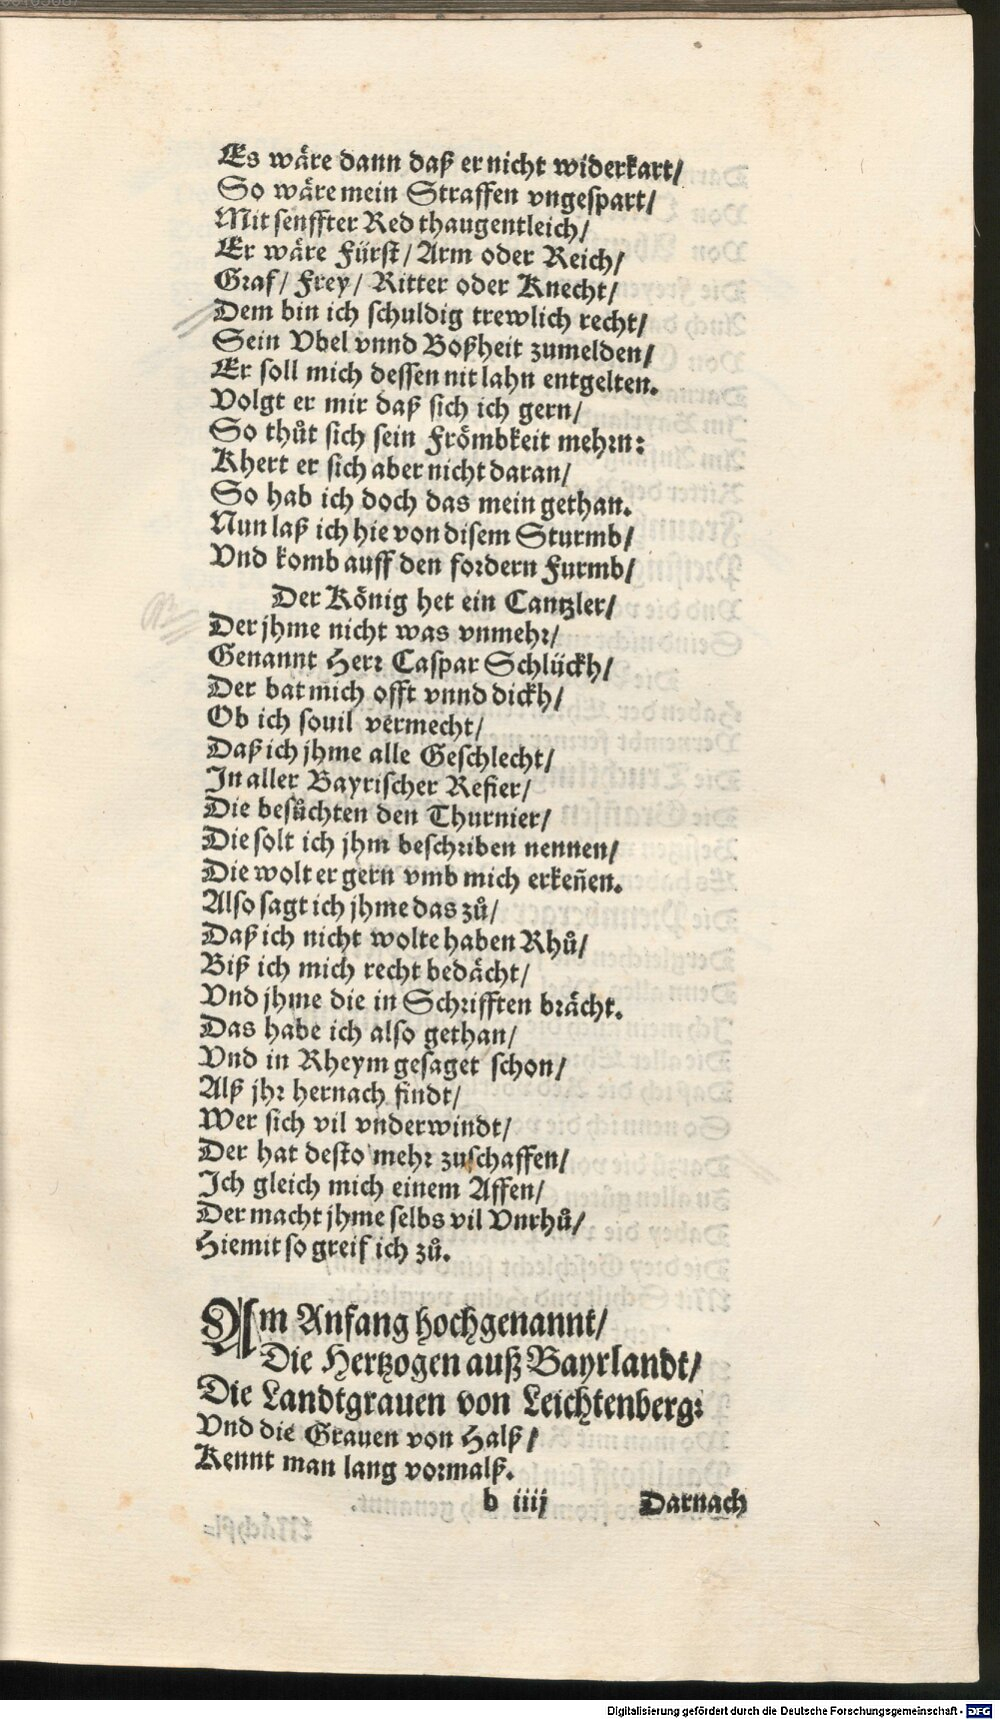 Es wäre dann daß er nicht widerkart/
So wäre mein Straffen vngespart/
Mit senffter Red thaugentleich/
Er wäre Fürst/ Arm oder Reich/
Graf/ Frey/ Ritter oder Knecht/
Dem bin ich schuldig trewlich recht/
Sein Vbel vnnd Boßheit zumelden/
Er soll mich dessen nit lahn entgelten.
Volgt er mir daß sich ich gern/
So thůt sich sein Frömbkeit mehrn:
Khert er sich aber nicht daran/
So hab ich doch das mein gethan.
Nun laß ich hie von disem Sturmb/
Vnd komb auff den fordern Furmb/
Der König het ein Cantzler/
Der jhme nicht was vnmehr/
Genannt Herr Caspar Schlückh/
Der bat mich offt vnnd dickh/
Ob ich souil vermecht/
Daß ich jhme alle Geschlecht/
In aller Bayrischer Refier/
Die besůchten den Thurnier/
Die solt ich jhm beschriben nennen/
Die wolt er gern vmb mich erkeñen.
Also sagt ich jhme das zů/
Daß ich nicht wolte haben Rhů/
Biß ich mich recht bedächt/
Vnd jhme die in Schrifften brächt.
Das habe ich also gethan/
Vnd in Rheym gesaget schon/
Alß jhr hernach findt/
Wer sich vil vnderwindt/
Der hat desto mehr zuschaffen/
Ich gleich mich einem Affen/
Der macht jhme selbs vil Vnrhů/
Hiemit so greif ich zů.
Am Anfang hochgenannt/
Die Hertzogen auß Bayrlandt/
Die Landtgrauen von Leichtenberg:
Vnd die Grauen von Halß/
Kennt man lang vormalß.
b iiij Darnach
Digitalisierung gefördert durch die Deutsche Forschungsgemeinschaft - DFG